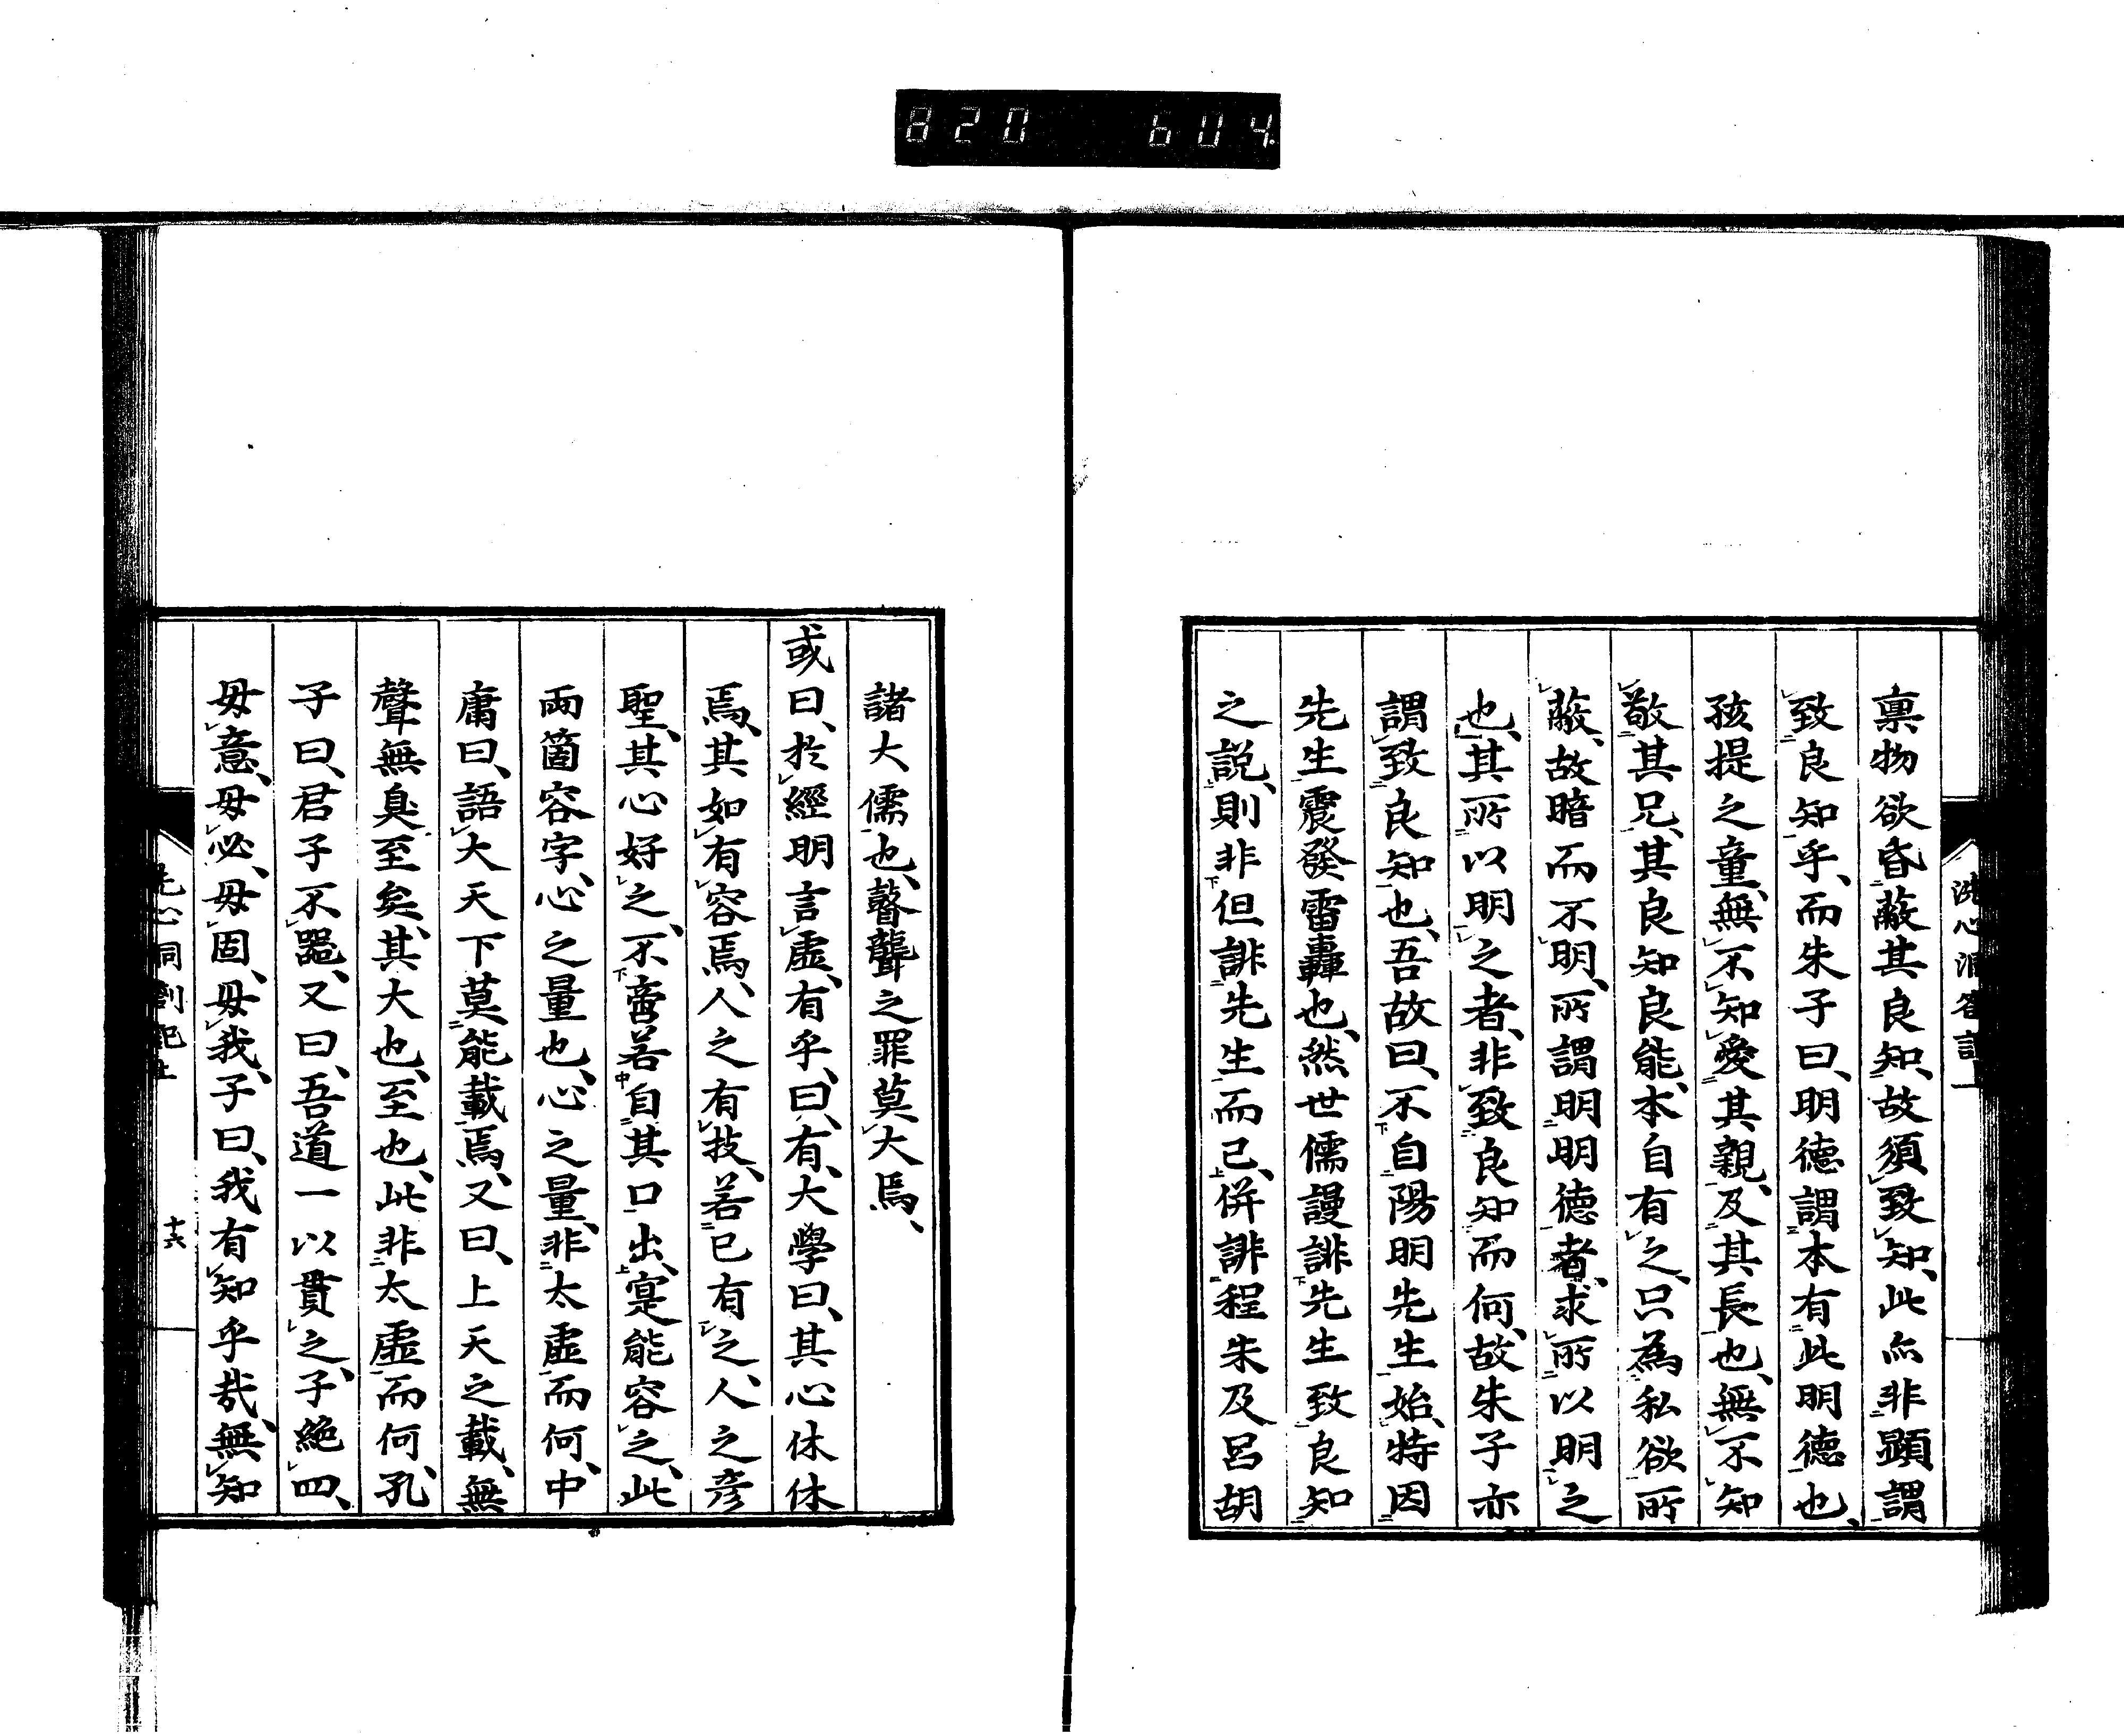 820 604
洗心洞劄記
禀物欲昏蔽其良知、故須致知、此亦非顕謂
致良知乎、而朱子曰、明德謂本有此明德也、
孩提之童、無不知愛其親、及其長也、無不知
敬其兄、其良知良能、本自有之、只為私欲所
蔽、故暗而不明、所謂明明德者、求所以明之
也、其所以明之者、非致良知而何、故朱子亦
謂致良知也、吾故曰、不自陽明先生始、特因
先生震發雷轟也、然世儒謾誹先生致良知
之説、則非但誹先生而已、併誹程朱及呂胡
諸大儒也、瞽聾之罪莫大焉、
或曰、於經明言虛、有乎、曰、有、大學曰、其心休休
焉、其如有容焉、人之有技、若已有之、人之彦
聖、其心好之、不啻若自其口出、寔能容之、此
兩箇容字、心之量也、心之量、非太虛而何、中
庸曰、語大天下莫能載焉、又曰、上天之載、無
聲無臭至矣、其大也、至也、此非太虛而何、孔
子曰、君子不器、又曰、吾道一以貫之、子絶四、
毋意、毋必、毋固、毋我、子曰、我有知乎哉、無知
洗心洞劄記上
十六